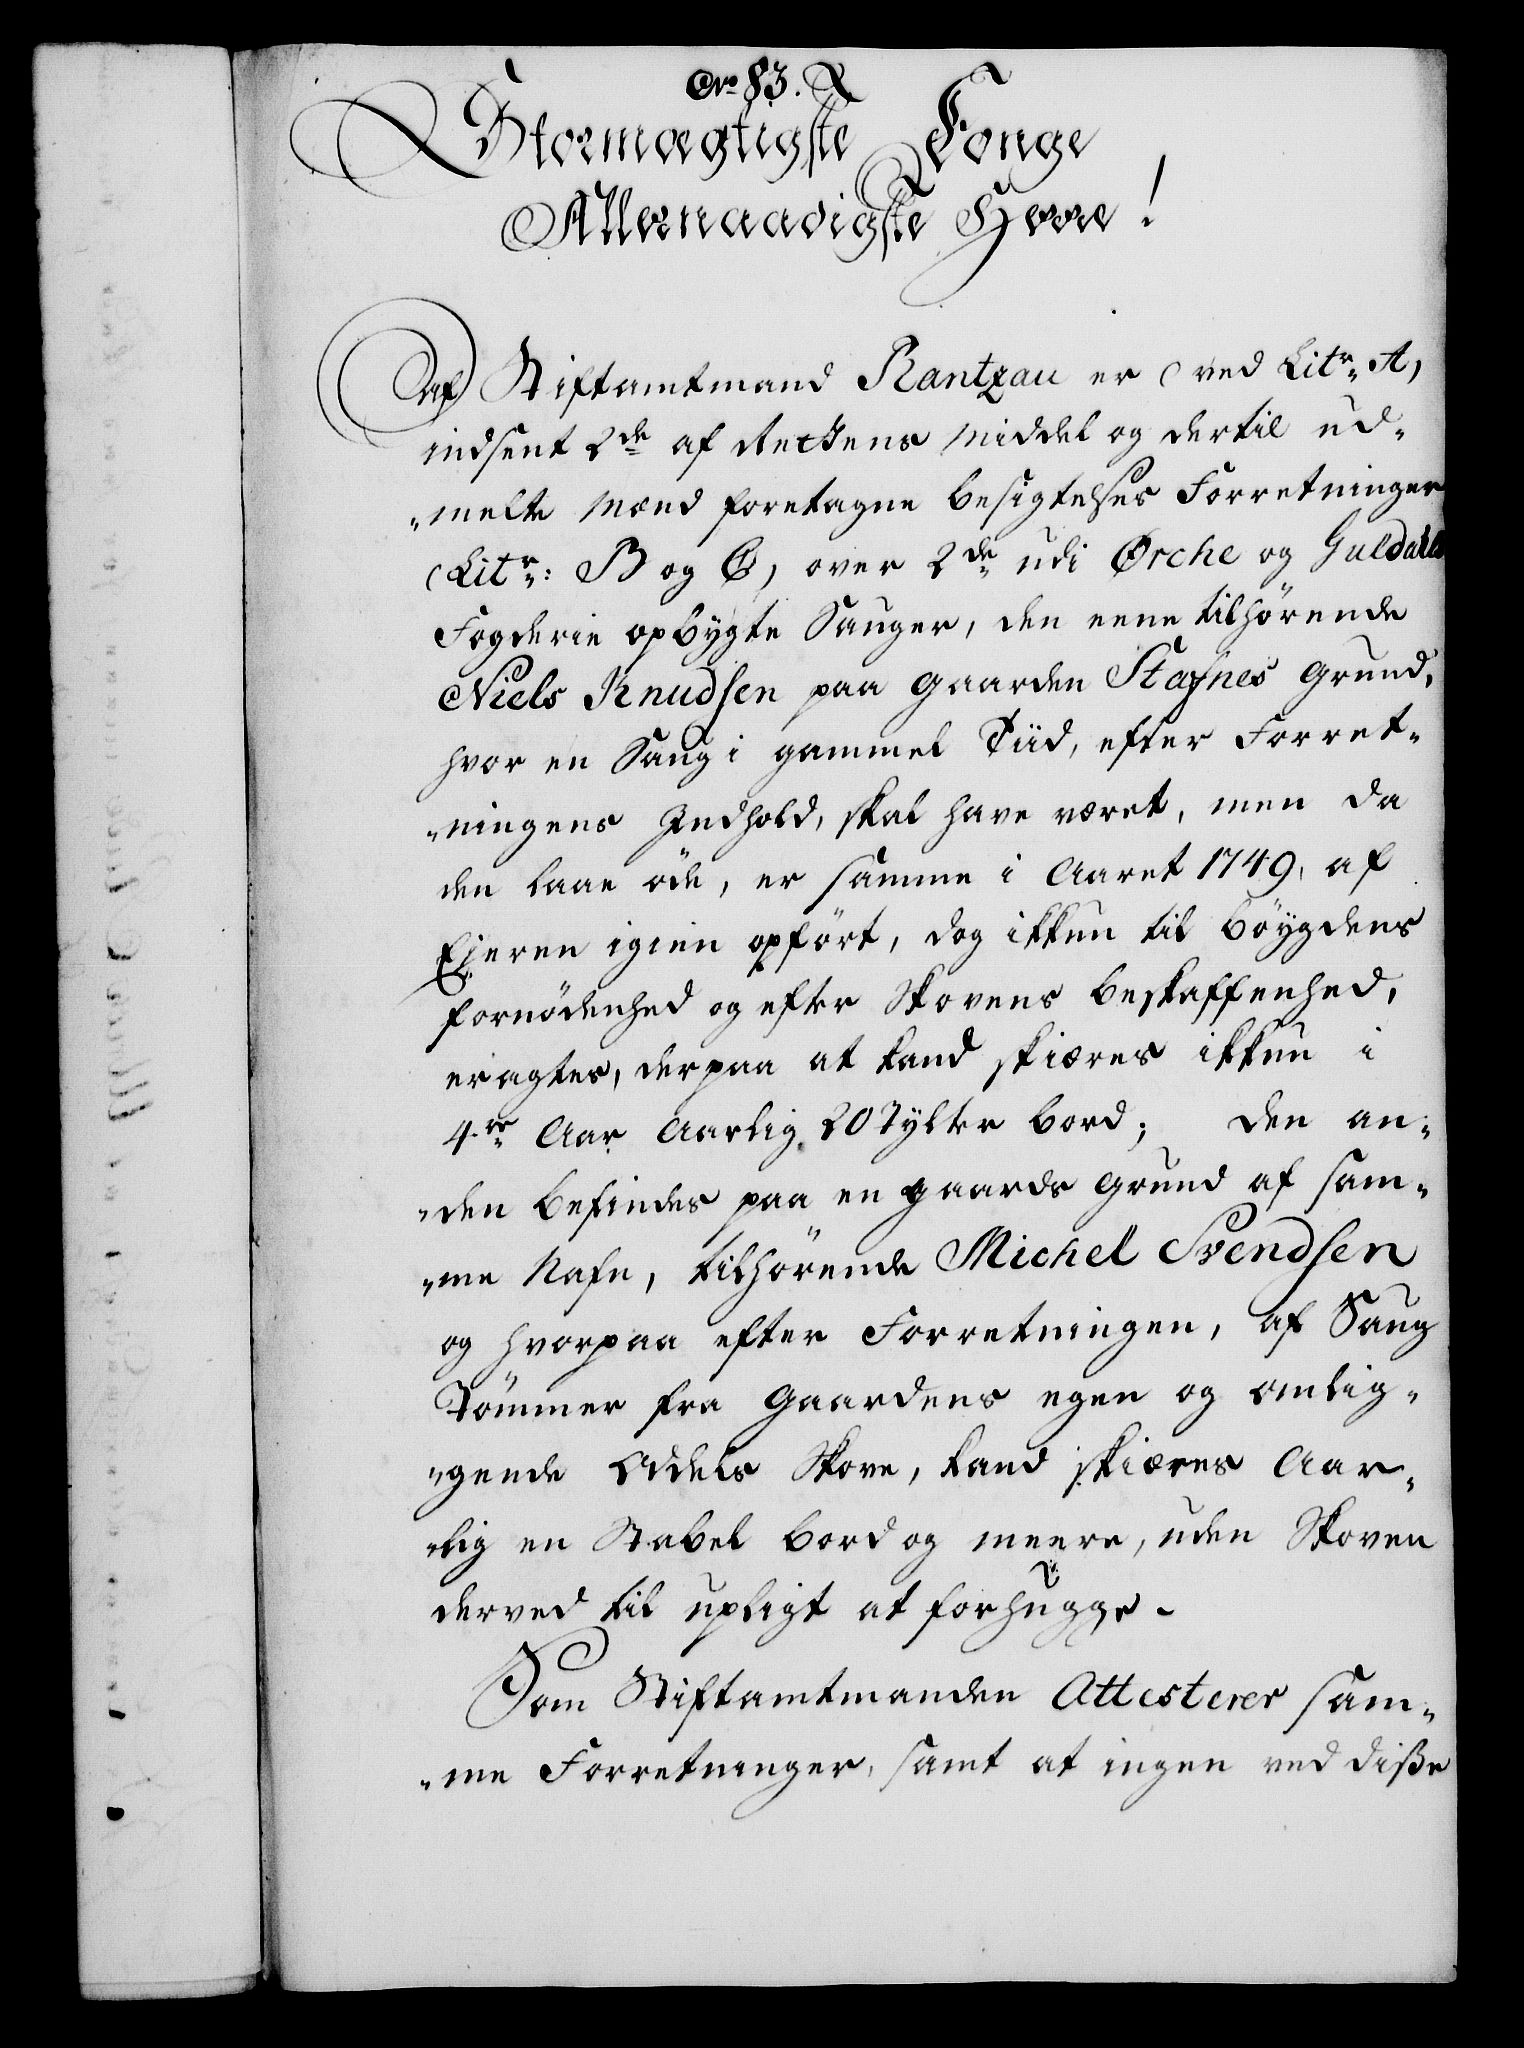 No 83.
Stormægtigste Konge
Allernaadigste Herre!
Af Stiftamtmand Rantzau er (ved Litr. A,
indsent 2de af Rettens Middel og dertil ud-
-melte Mænd foretagne besigtelses Forretninger
(Litr: B og C, over 2de udi Ørche og Guldahls
Fogderie opbygte Sauger, den eene tilhörende
Niels Knudsen paa Gaarden Stafnes Grund,
hvor en Saug i gammel Tiid, efter Forret-
-ningens Indhold, skal have været, men da
den laae öde, er samme i Aaret 1749, af
Ejeren igien opfört, dog ikkun til böygdens
fornödenhed og efter Skovens beskaffenhed,
eragtes, derpaa at kand skiæres ikkun i
4re Aar Aarlig 20 Tylter bord; den an-
-den befindes paa en gaards Grund af sam-
-me Nafn, tilhörende Michel Svendsen
og hvorpaa efter Forretningen, af Saug
Tömmer fra Gaardens egen og omlig-
-gende Oddels Skove, kand skiæres Aar-
-lig en Stabel bord og meere, uden Skoven
derved til upligt at forhugge.
Som Stiftamtmanden Attesterer sam-
-me Forretninger, samt at ingen ved diße